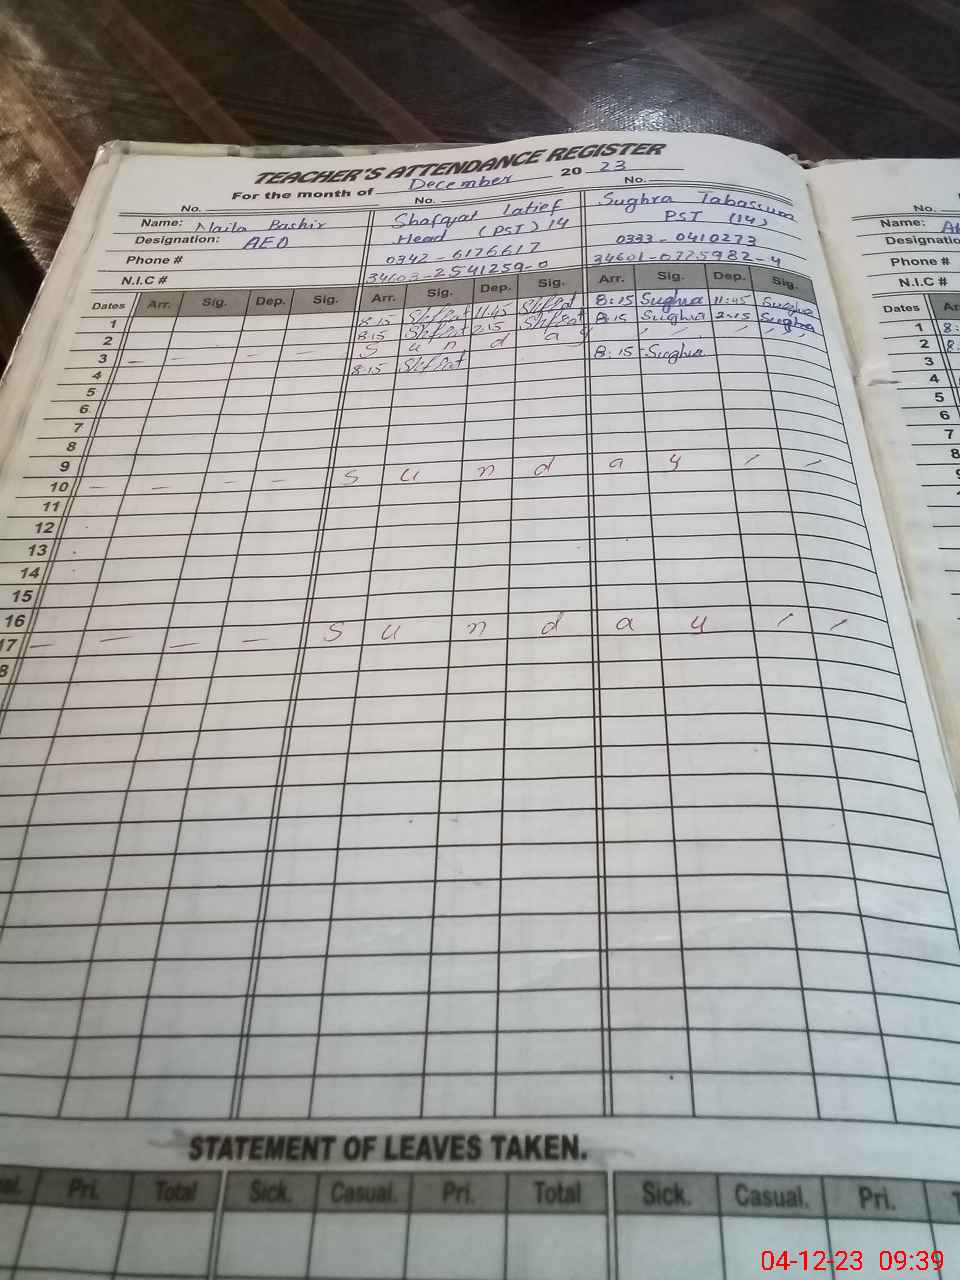 TEACHER'S ATTENDANCE REGISTER
For the month of December 20 23
No. No. No.
Name: Naila Bashir Shafqat Latief Sughra Tabassum
Designation: AEO Head (PST) 14 PST (14)
Phone # 0342-6176617 0333-0410273
N.I.C # 34603-2541259-0 34601-0725982-4
Dates Arr. Sig. Dep. Sig. Arr. Sig. Dep. Sig. Arr. Sig. Dep. Sig.
1 8:15 11:45 8:15 Sughra 11:45 Sughra
2 8:15 2:15 8:15 Sughra 2:15 Sughra
3 — — — — S u n d a y
4 8:15 8:15 Sughra
5
6
7
8
9
10 — — — — S u n d a y
11
12
13
14
15
16
17 — — — — S u n d a y
8
STATEMENT OF LEAVES TAKEN.
al. Pri. Total Sick. Casual. Pri. Total Sick. Casual. Pri. T
No.
Name:
Designatio
Phone #
N.I.C #
Dates Ar
1 8:
2 8:
3
4
5
6
7
8
04-12-23 09:39